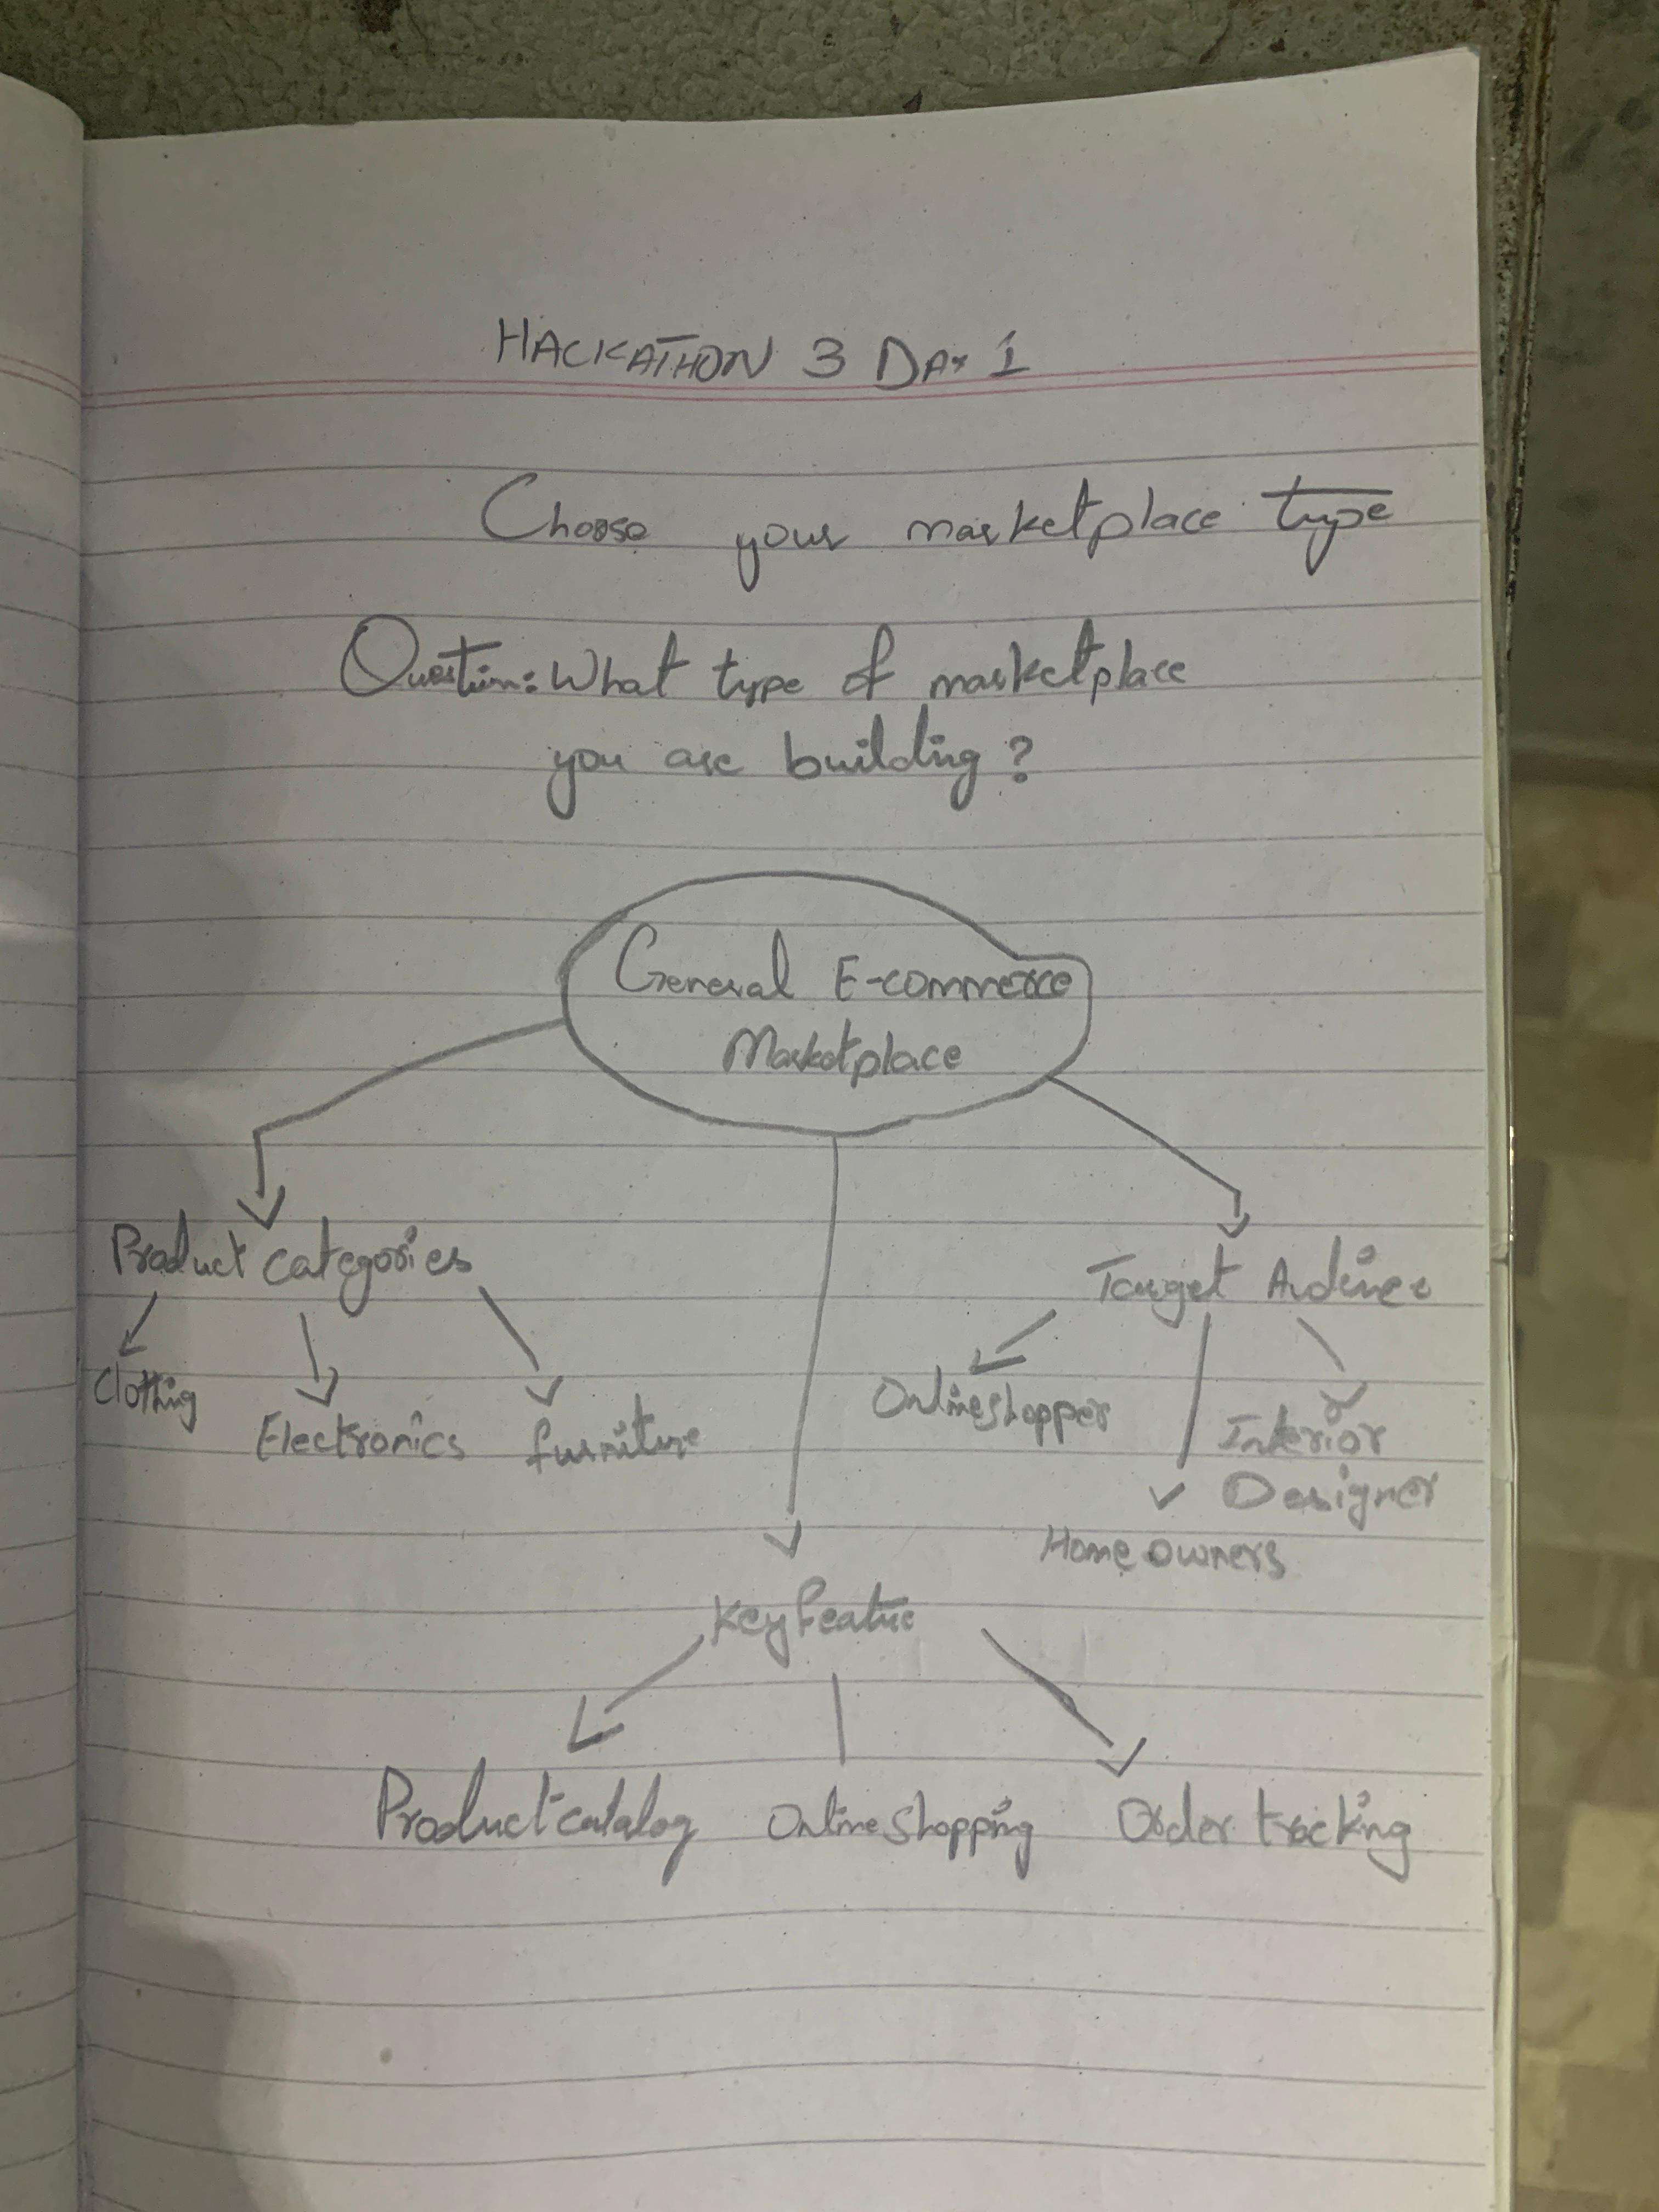 HACKATHON 3 DAY 1
Choose your marketplace type
Question: What type of marketplace
you are building?
General E-commerce
Marketplace
Product categories
Target
Clothing
Electronics
furniture
Onlineshopper
Interior
Designer
Home owners
Key
Product catalog
Online shopping
Order tracking